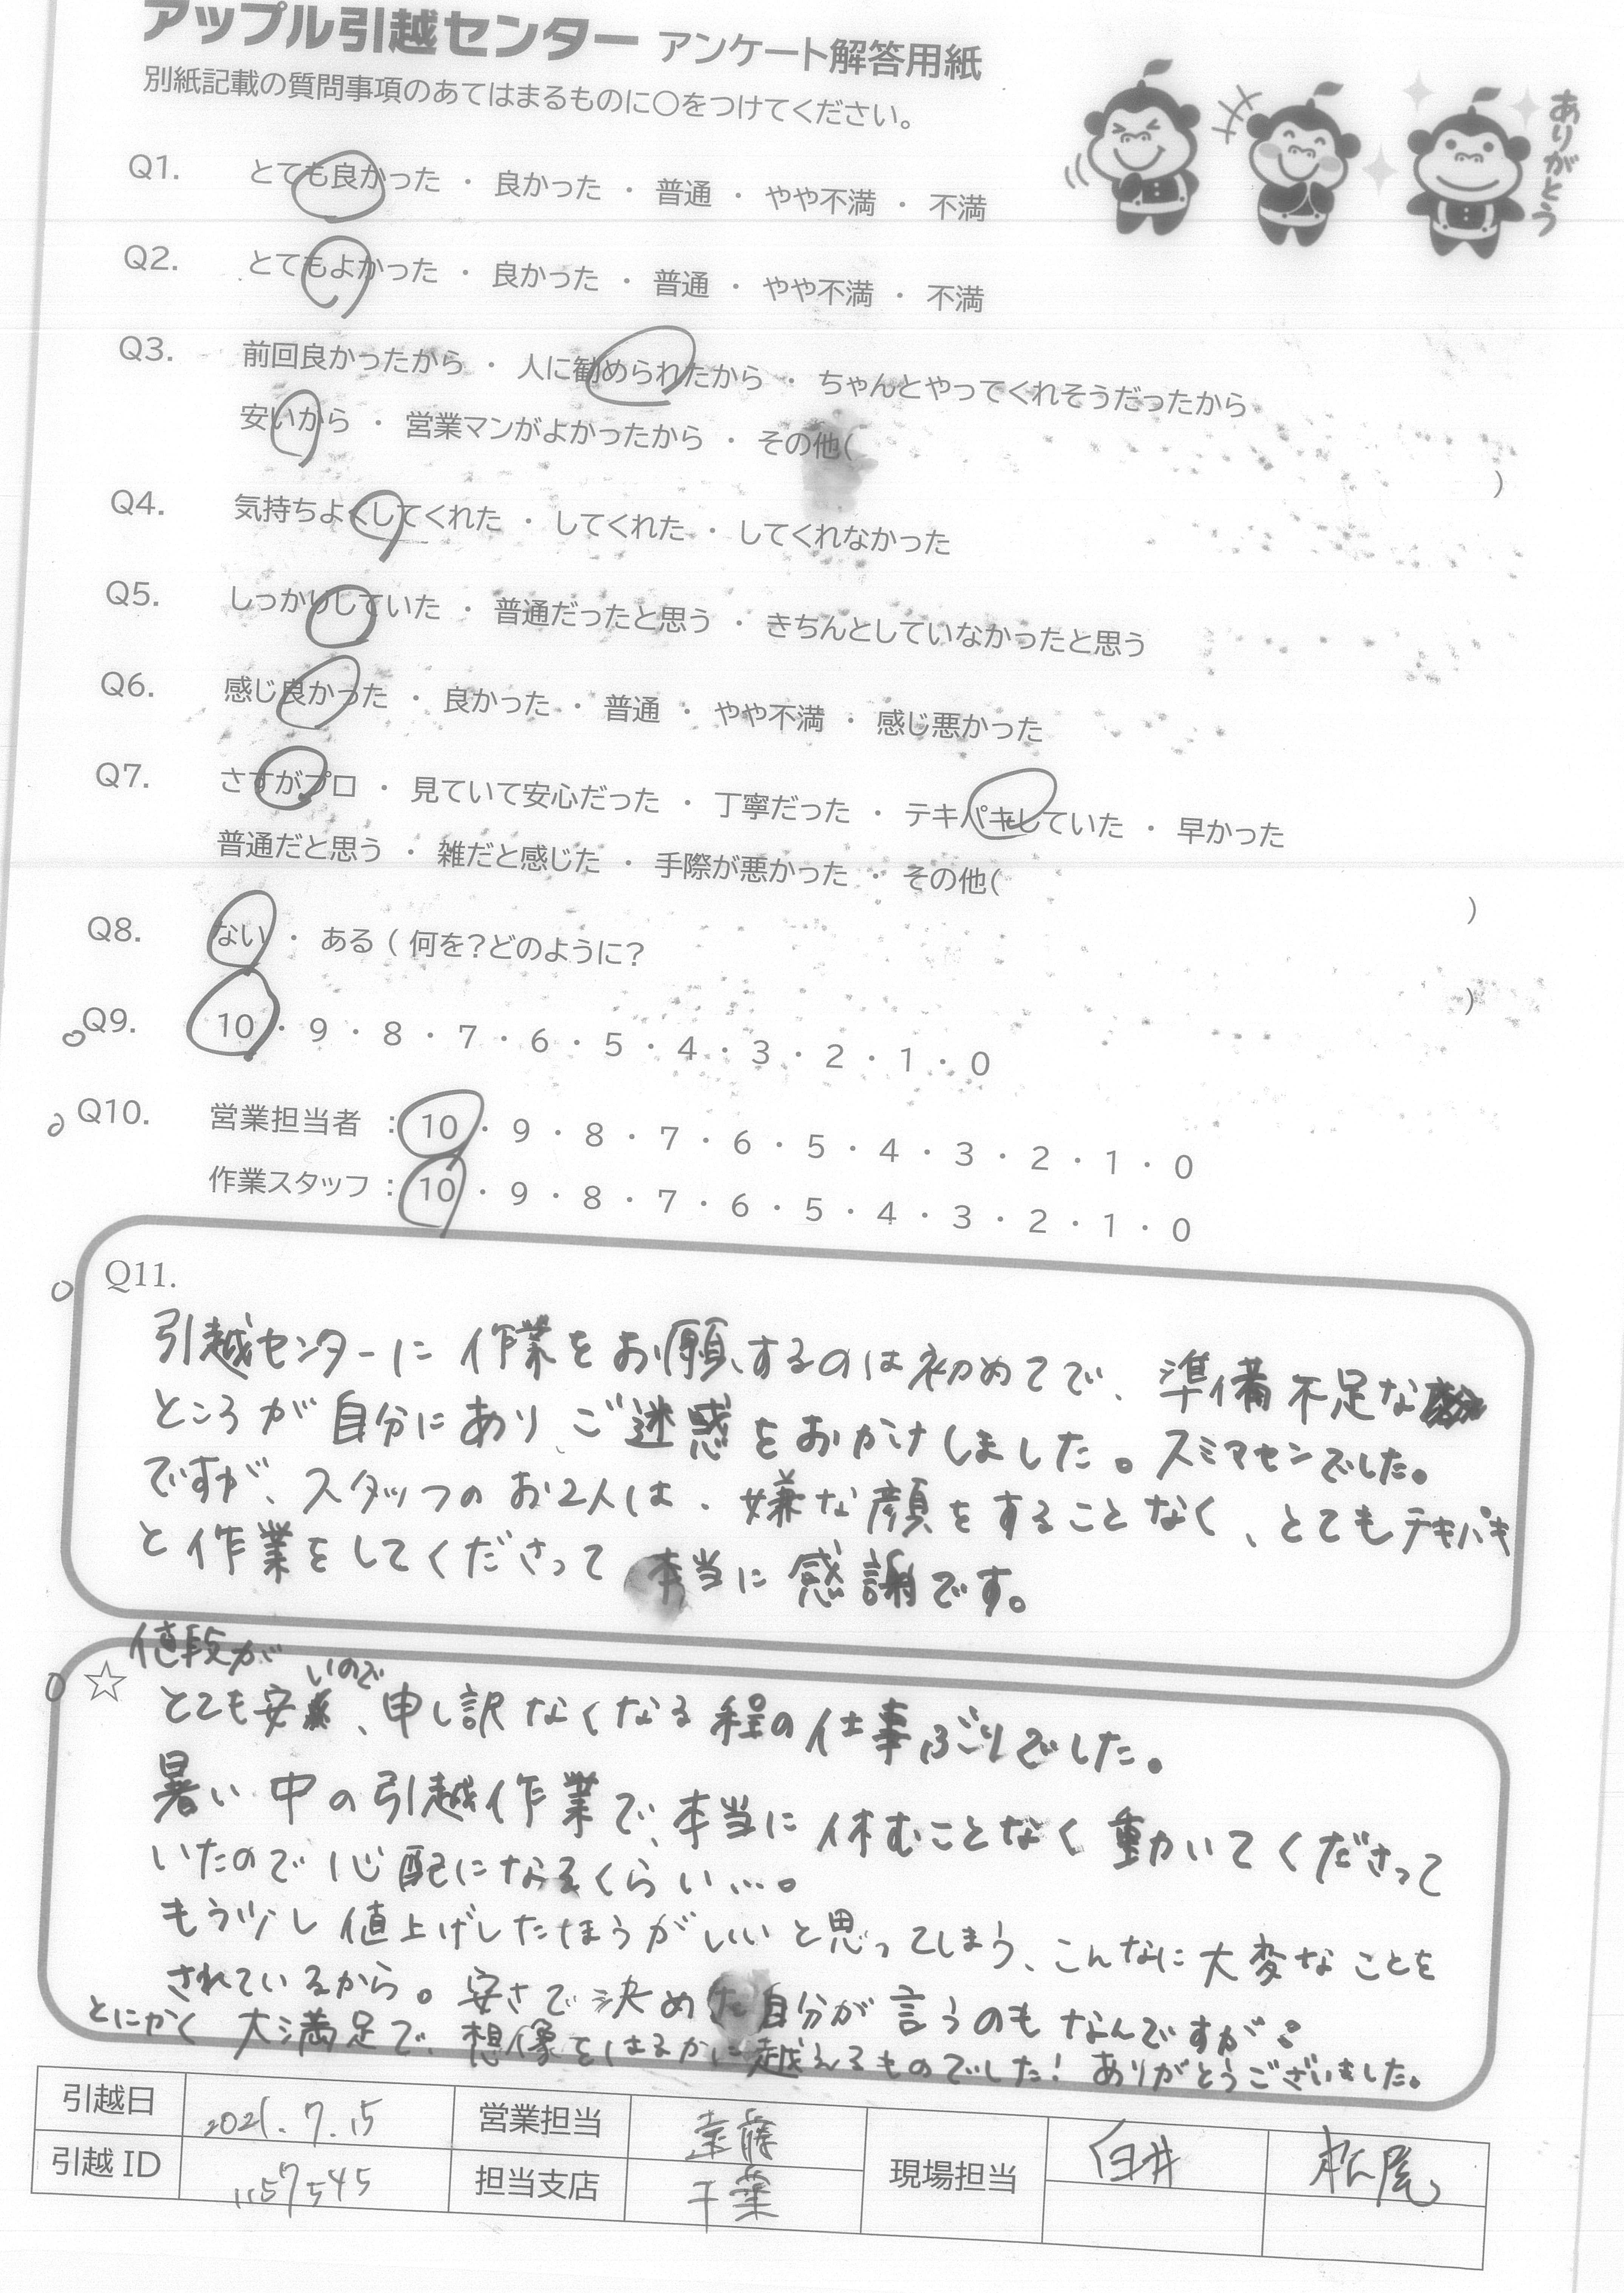 アップル引越センター アンケート解答用紙
別紙記載の質問事項のあてはまるものに〇をつけてください。
ありがとう
Q1. とても良かった ・ 良かった ・ 普通 ・ やや不満 ・ 不満
Q2. とてもよかった ・ 良かった ・ 普通 ・ やや不満 ・ 不満
Q3. 前回良かったから ・ 人に勧められたから ・ ちゃんとやってくれそうだったから
安いから ・ 営業マンがよかったから ・ その他( )
Q4. 気持ちよくしてくれた ・ してくれた ・ してくれなかった
Q5. しっかりしていた ・ 普通だったと思う ・ きちんとしていなかったと思う
Q6. 感じ良かった ・ 良かった ・ 普通 ・ やや不満 ・ 感じ悪かった
Q7. さすがプロ ・ 見ていて安心だった ・ 丁寧だった ・ テキパキしていた ・ 早かった
普通だと思う ・ 雑だと感じた ・ 手際が悪かった ・ その他( )
Q8. ない ・ ある ( 何を?どのように? )
Q9. 10 ・ 9 ・ 8 ・ 7 ・ 6 ・ 5 ・ 4 ・ 3 ・ 2 ・ 1 ・ 0
Q10. 営業担当者 : 10 ・ 9 ・ 8 ・ 7 ・ 6 ・ 5 ・ 4 ・ 3 ・ 2 ・ 1 ・ 0
作業スタッフ : 10 ・ 9 ・ 8 ・ 7 ・ 6 ・ 5 ・ 4 ・ 3 ・ 2 ・ 1 ・ 0
Q11.
引越センターに作業をお願いするのは初めてで、準備不足な
ところが自分にあり、ご迷惑をおかけしました。スミマセンでした。
ですが、スタッフのお2人は、嫌な顔をすることなく、とてもテキパキ
と作業をしてくださって本当に感謝です。
☆ 値段が
とても安いので、申し訳なくなる程の仕事ぶりでした。
暑い中の引越作業で、本当に休むことなく動いてくださって
いたので心配になるくらい…。
もう少し値上げしたほうがいいと思ってしまう、こんなに大変なことを
されているから。安さで決めた自分が言うのもなんですが。
とにかく大満足で、想像をはるかに越えるものでした! ありがとうございました。
引越日 2021.7.15 営業担当 遠藤 現場担当 白井 松尾
引越ID 1157545 担当支店 千葉